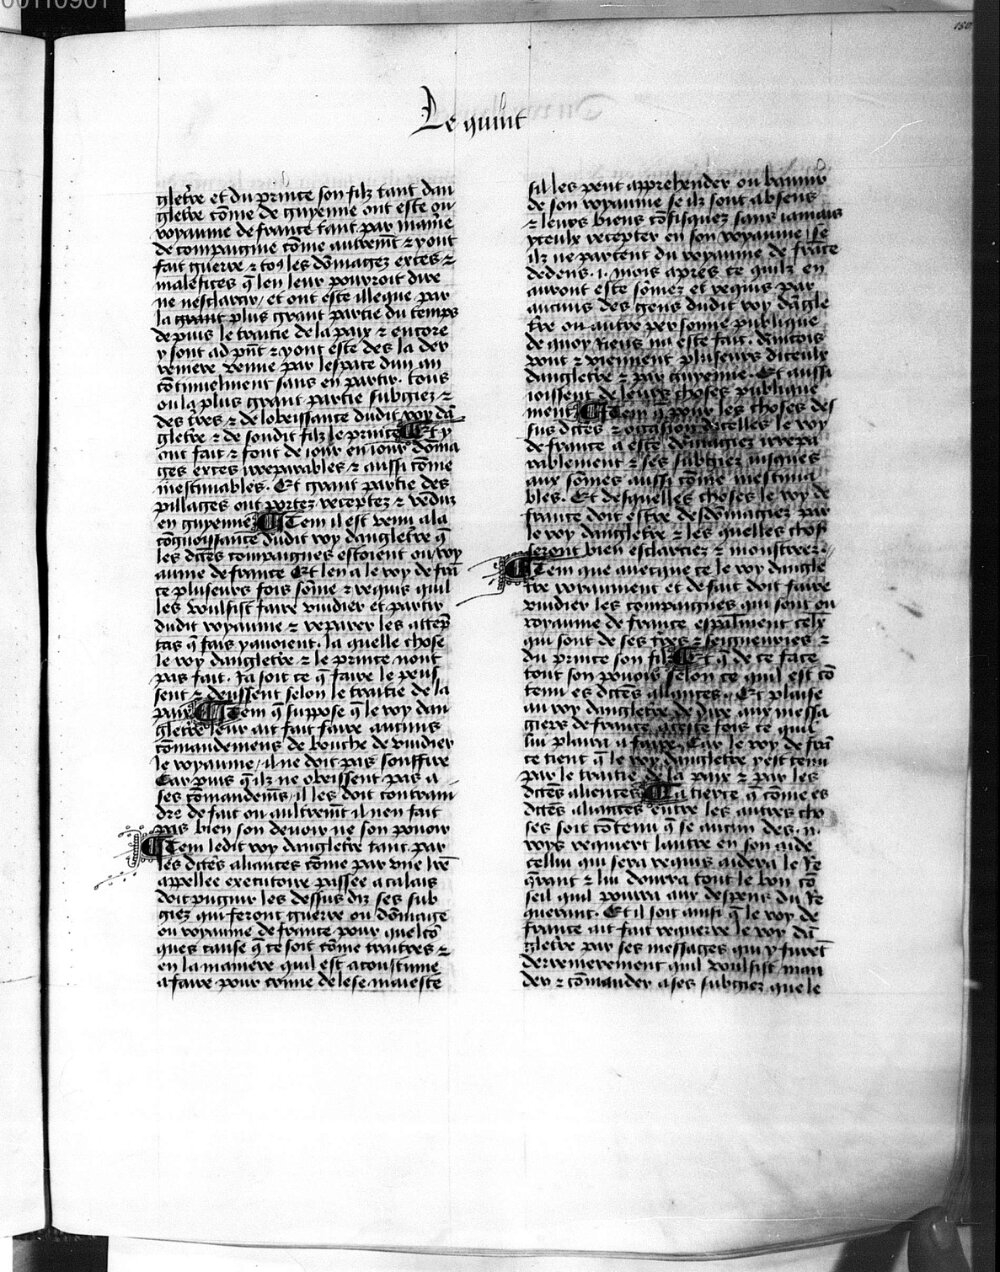 00110901
150
Le quint
gleterre et du prince son filz tant dan
gletre cōme de guyenne ont este ou
royaume de france tant par manie
de compaignie cōme autremt̄ ⁊ y ont
fait guerre ⁊ to9 les dōmagez exces ⁊
malefices q̄ len leur pourroit dire
ne nesclarcir / et ont este illeque par
la grant plus grant partie du temps
de puis le traitie de la paix ⁊ encore
y sont ad pn̄t ⁊ y ont este des la der
reniere venue par lespace dun an
cōtinuelment sans en partir. tous
ou la plus grant partie subgiez ⁊
des tr̄es ⁊ de lobeissance dudit roy dā
gletr̄e ⁊ de sondit filz le prince Et y
ont fait ⁊ font de iour en iour doma
ges exces irreparables ⁊ aussi cōme
inestimables. Et grant partie des
pillages ont portez receptez ⁊ vēduz
en guyenne Item il est venu a la
cōgnoissance dudit roy dangletr̄e q̄
les dictes compaignes estoient ou roy
aume de france Et len a le roy de frā
ce plusieurs fois sōme ⁊ requis quil
les voulsist faire vuidier et partir
dudit royaume ⁊ reparer les attēp
tas q̄ fais y auoient. la quelle chose
le roy dangletr̄e ⁊ le prince nont
pas fait. Ja soit ce q̄ faire le peus
sent ⁊ deussent selon le traitie de la
paix Item q̄ suppose q̄ le roy dan
gletr̄e leur ait fait faire aucuns
cōmandemens de bouche de vuidier
le royaume / il ne doit pas souffire
Car puis q̄ ilz ne obeissent pas a
ses cōmandemēs / il les doit contrain
dre de fait ou aultremt̄ il nen fait
pas bien son deuoir ne son pouoir
Item ledit roy dangletr̄e tant par
les dict̄es aliances cōme par vne lr̄e
appellee executoire passee a calais
doit pugnir les dessus diz ses sub
giez qui feront guerre ou dōmage
ou royaume de france pour quelcō
ques cause q̄ ce soit cōme traitres ⁊
en la maniere quil est acoustume
a faire pour crime de lese maieste
sil les peut apprehender ou bannir
de son royaume se ilz sont absens
⁊ leurs biens cōfisquez sans iamais
yceulx recepter en son royaume / se
ilz ne partent du royaume de frāce
dedens .i. mois apres ce quilz en
auront este sōmez et requis par
aucuns des gens dudit roy dāgle
tr̄e ou autre personne publique
de quoy riens na este fait. Aincois
vont ⁊ viennent plusieurs diceulx
dangletr̄e ⁊ par guyenne. Et aussi
ioissent de leurs choses publique
ment Item q̄ pour les choses des
sus dictes ⁊ occasion dicelles le roy
de france a este dōmagiez irrepa
rablement ⁊ ses subgiez iusques
aux sōmes aussi cōme inestima
bles. Et desquelles choses le roy de
france doit estre desdōmagiez par
le roy dangletr̄e ⁊ les quelles chos
seront bien esclarcies ⁊ monstrees
Item que auecque ce le roy dangle
tr̄e royaument et de fait doit faire
vuidier les compaignes qui sont ou
royaume de france espālment celx
qui sont de ses tr̄es ⁊ seigneuries ⁊
du prince son filz Et q̄ de ce face
tout son pouoir selon ce quil est cō
tenu es dict̄es aliances. Et plaise
au roy dangletr̄e de dire aux messa
giers de france a ceste fois ce quil
lui plaira a faire. Car le roy de frā
ce tient q̄ le roy dangletr̄e y est tenu
par le traitie de la paix ⁊ par les
dict̄es aliences La tierce q̄ cōme es
dict̄es aliances entre les autres cho
ses soit cōtenu q̄ se aucun des .ii.
roys requiert lautre en son aide
cellui qui sera requis aidera le Re
q̄rant ⁊ lui donrra tout le bon cō
seil quil pourra aux despens du Re
querant. Et il soit ainsi q̄ le roy de
france ait fait requerre le roy dā
gletr̄e par ses messages qui y furēt
derrenierement quil voulsist man
der ⁊ cōmander a ses subgiez que le